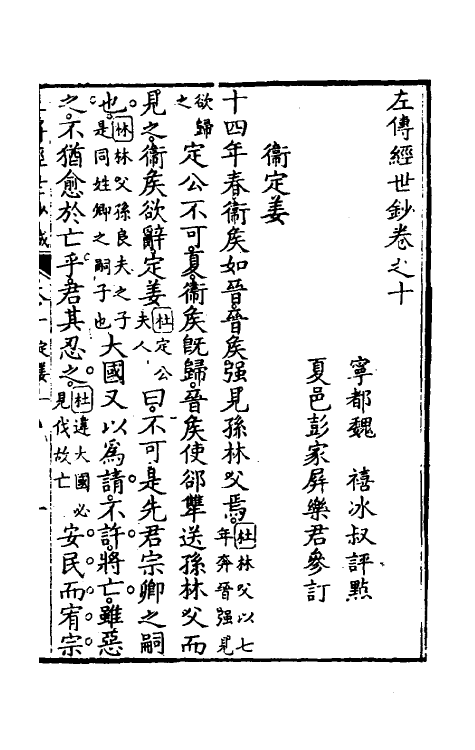 左傳經世鈔卷之十
寧都魏　禧冰叔評點
夏邑彭家屏樂君參訂
衞定姜
十四年春衞矦如晉晉矦强見孫林父焉杜林父以七年奔晉强見欲歸之
定公不可夏衞矦旣歸晉矦使郤犫送孫林父而
見之衞矦欲辭定姜杜定公夫人曰不可是先君宗卿之嗣
也林林父孫良夫之子是同姓卿之嗣子也大國又以爲請不許將亡雖惡
之不猶愈於亡乎君其忍之杜違大國必見伐故亡安民而宥宗